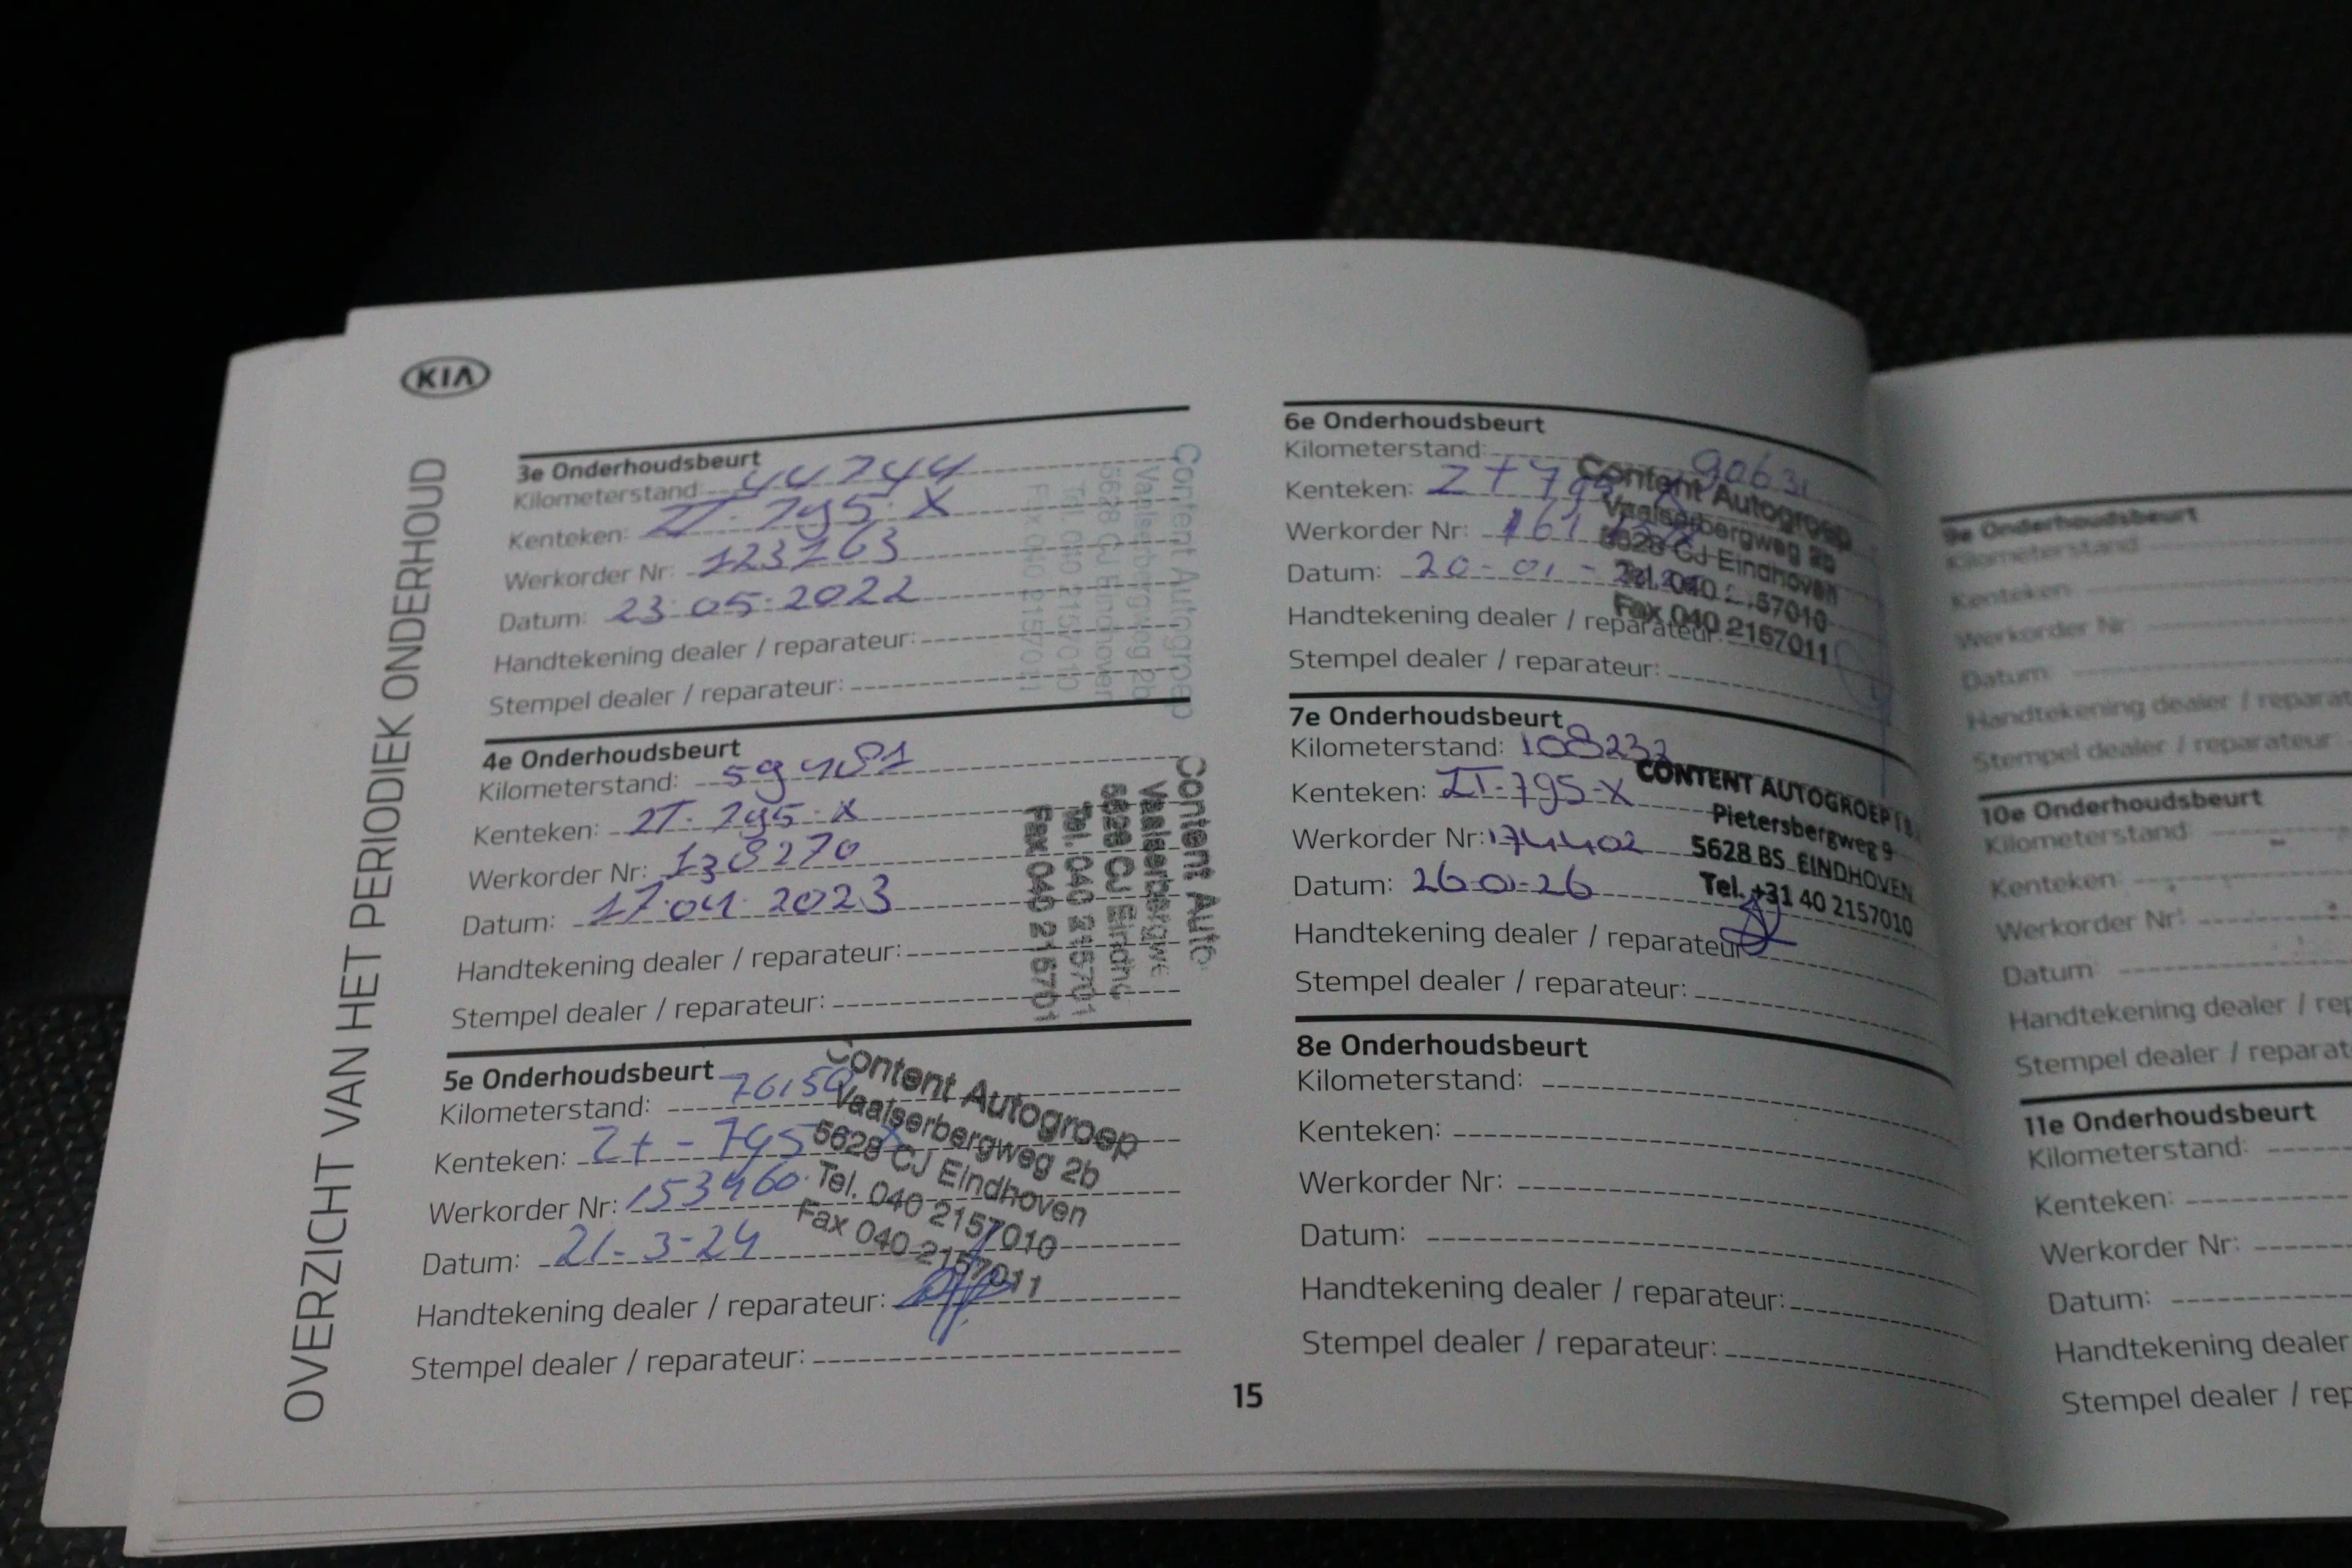 KIA
OVERZICHT VAN HET PERIODIEK ONDERHOUD
3e Onderhoudsbeurt
Kilometerstand: 44744
Kenteken: ZT-795-X
Werkorder Nr: 123263
Datum: 23-05-2022
Handtekening dealer / reparateur:
Stempel dealer / reparateur:
Content Autogroep
Vaalserbergweg 2b
5628 CJ Eindhoven
Tel. 040 2157010
Fax 040 2157011
4e Onderhoudsbeurt
Kilometerstand: 59481
Kenteken: ZT-795-X
Werkorder Nr: 138270
Datum: 17-04-2023
Handtekening dealer / reparateur:
Stempel dealer / reparateur:
Content Auto
Vaalserbergwe
5628 CJ Eindho
Tel. 040 215701
Fax 040 215701
5e Onderhoudsbeurt
Kilometerstand: 76150
Kenteken: Zt-795 X
Werkorder Nr: 153460
Datum: 21-3-24
Handtekening dealer / reparateur:
Stempel dealer / reparateur:
Content Autogroep
Vaalserbergweg 2b
5628 CJ Eindhoven
Tel. 040 2157010
Fax 040 2157011
15
6e Onderhoudsbeurt
Kilometerstand: 90631
Kenteken:
Werkorder Nr:
Datum: 20-01-
Handtekening dealer / reparateur:
Stempel dealer / reparateur:
Content Autogroep
Vaalserbergweg 2b
5628 CJ Eindhoven
Tel. 040 2157010
Fax 040 2157011
7e Onderhoudsbeurt
Kilometerstand: 108232
Kenteken: ZT-795-X
Werkorder Nr: 174402
Datum: 26-01-26
Handtekening dealer / reparateur
Stempel dealer / reparateur:
CONTENT AUTOGROEP
Pietersbergweg 9
5628 BS EINDHOVEN
Tel. +31 40 2157010
8e Onderhoudsbeurt
Kilometerstand:
Kenteken:
Werkorder Nr:
Datum:
Handtekening dealer / reparateur:
Stempel dealer / reparateur:
9e Onderhoudsbeurt
Kilometerstand
Kenteken:
Werkorder Nr:
Datum
Handtekening dealer / reparat
Stempel dealer / reparateur
10e Onderhoudsbeurt
Kilometerstand
Kenteken:
Werkorder Nr:
Datum
Handtekening dealer / rep
Stempel dealer / reparat
11e Onderhoudsbeurt
Kilometerstand:
Kenteken:
Werkorder Nr:
Datum:
Handtekening dealer
Stempel dealer / rep